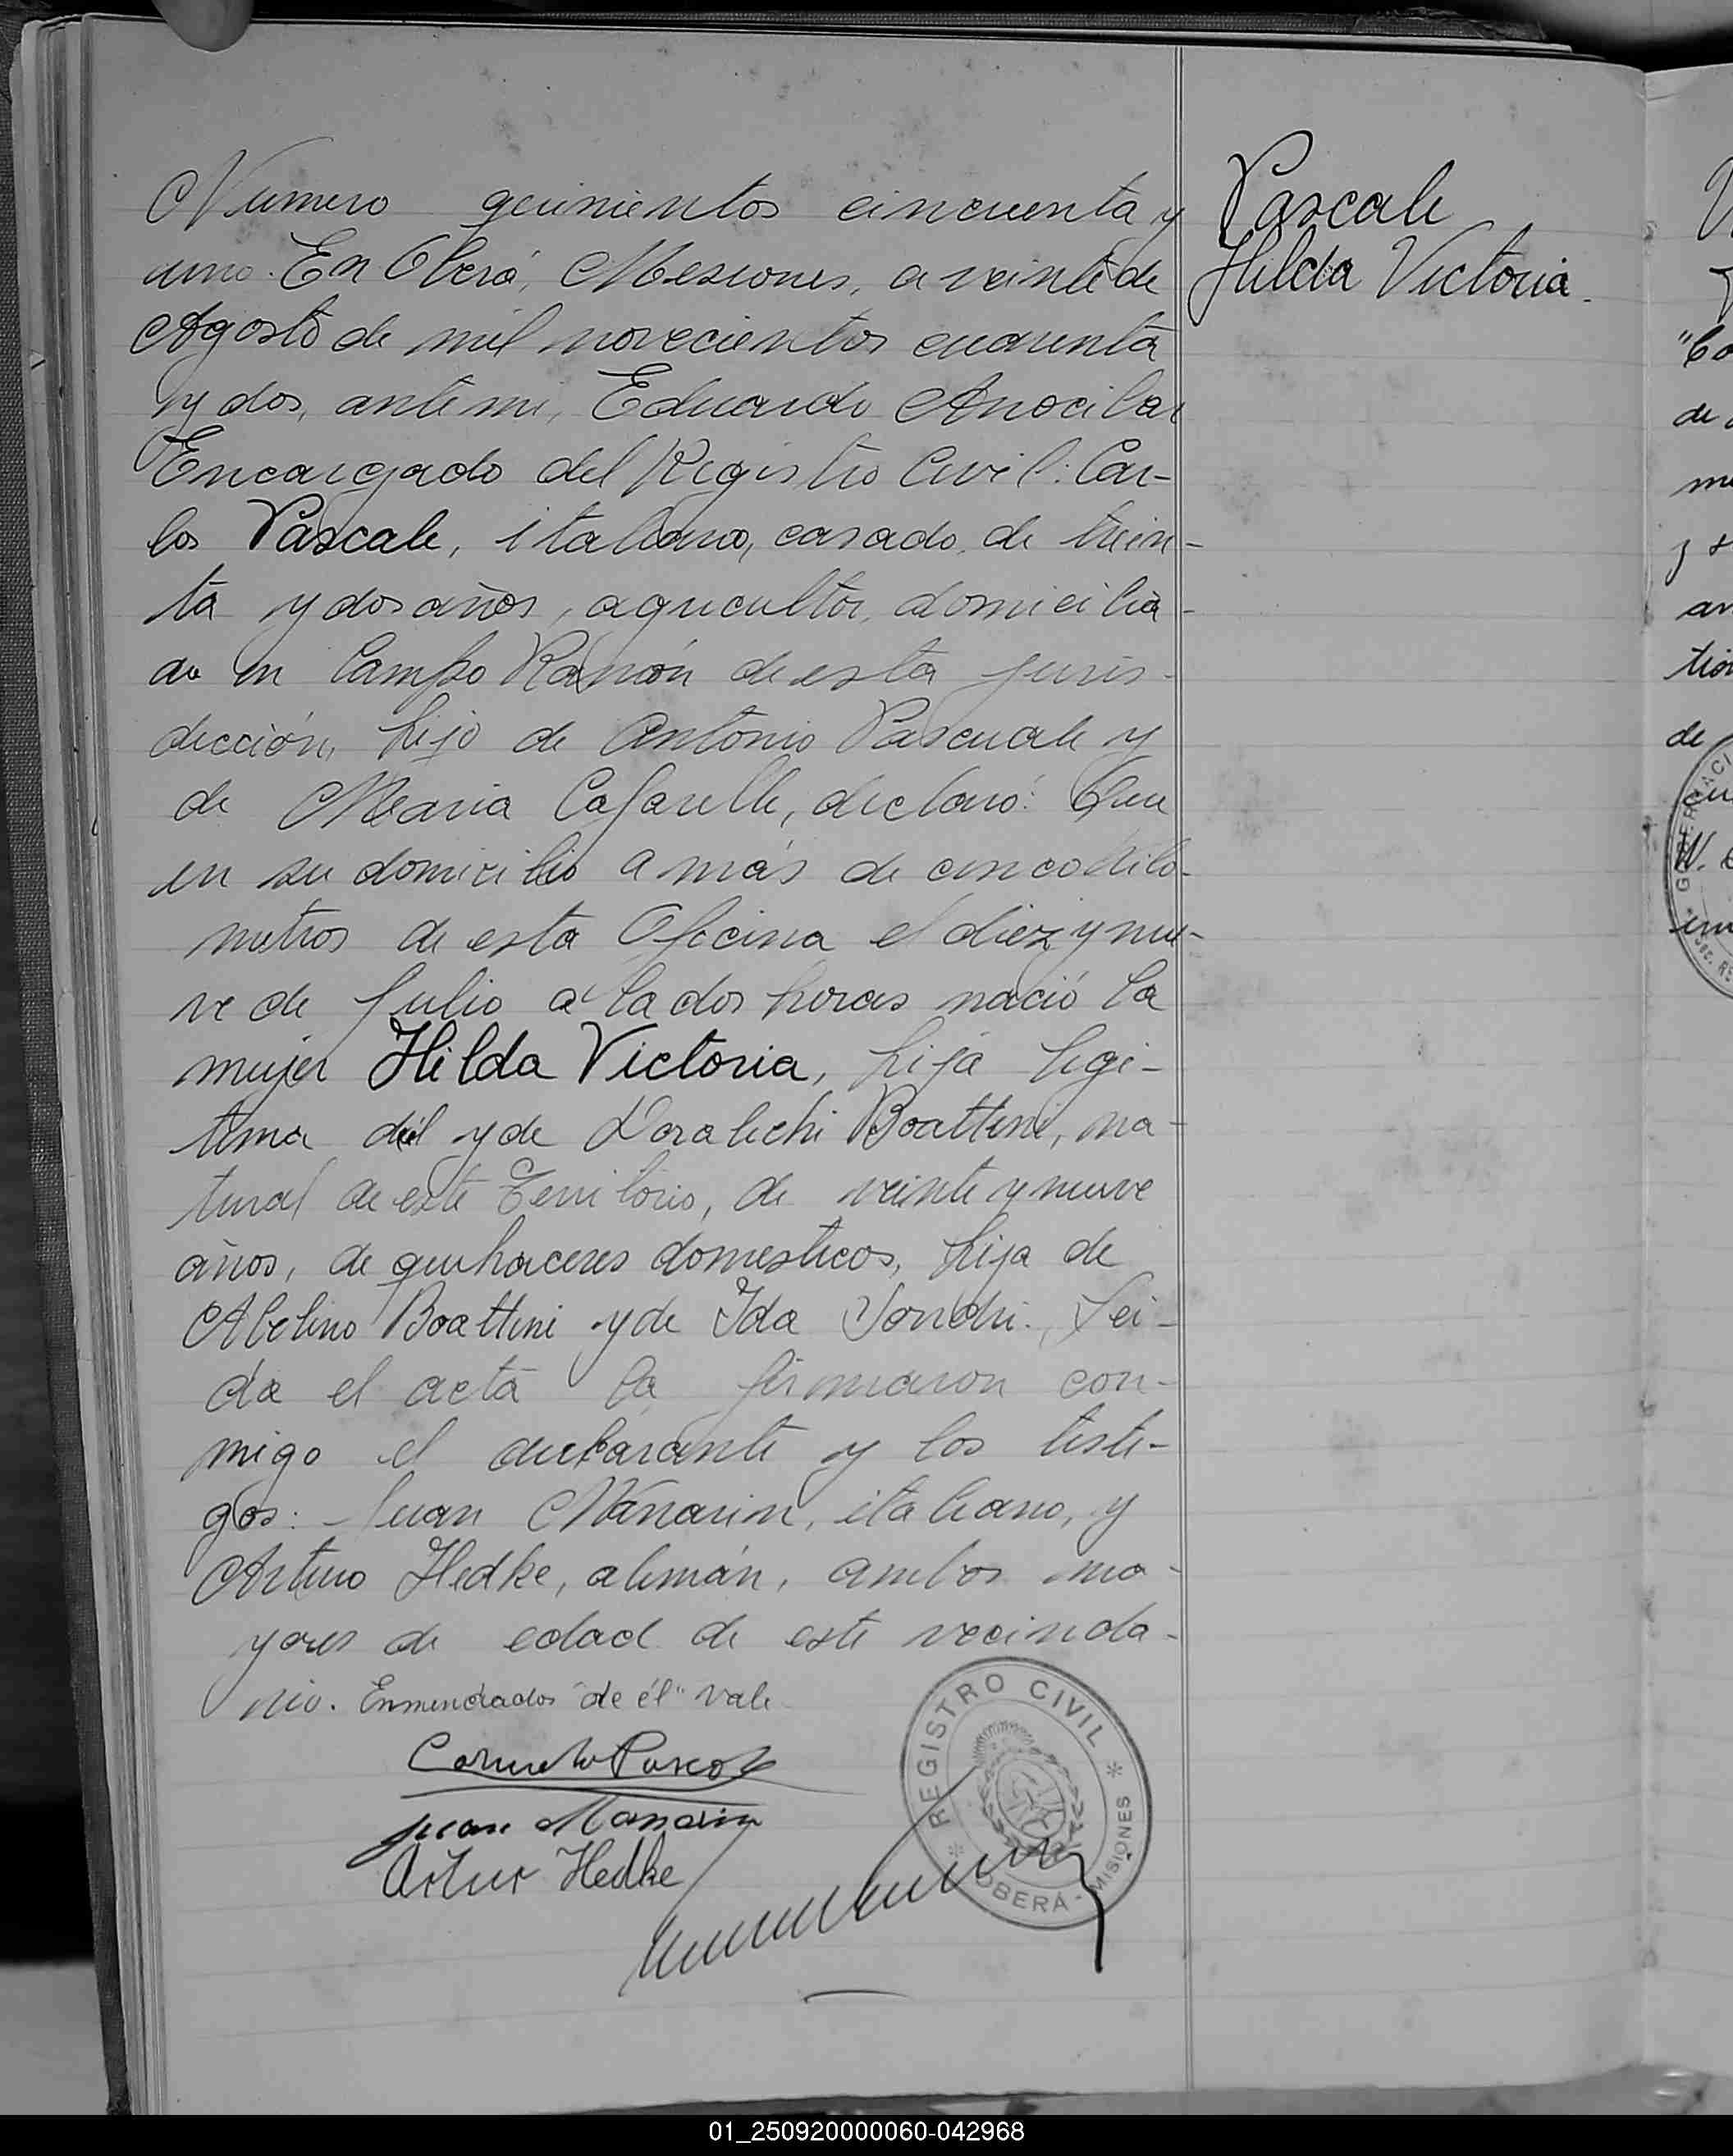 Numero quinientos cincuenta y
uno. En Oberá, Misiones, a veinte de
Agosto de mil novecientos cuarenta
y dos, ante mi, Eduardo
Encargado del Registro Civil: Car-
los Pascale, italiano, casado, de trein-
ta y dos años, agricultor, domicilia-
do en Campo Ramón de esta juris-
dicción, hijo de Antonio Pascuale y
de Maria Cafarelle, declaró: Que
en su domicilio a más de cinco kiló-
metros de esta Oficina el diez y nue-
ve de Julio a la dos horas nació la
mujer Hilda Victoria, hija legi-
tima dél y de Doralichi Boattini, na-
tural de este Territorio, de veinte y nueve
años, de quehaceres domesticos, hija de
Abelino Boattini y de Ida Leí-
da el acta la firmaron con-
migo el declarante y los testi-
gos: - Juan Manarin, italiano, y
Arturo Hedke, alemán, ambos ma-
yores de edad de este vecinda-
rio. Enmendados "de él" vale
Juan Manarin
Artur Hedke
REGISTRO CIVIL
* OBERÁ - MISIONES *
Pascale
Hilda Victoria.
"Co
de
me
y
an
tion
de
01_250920000060-042968